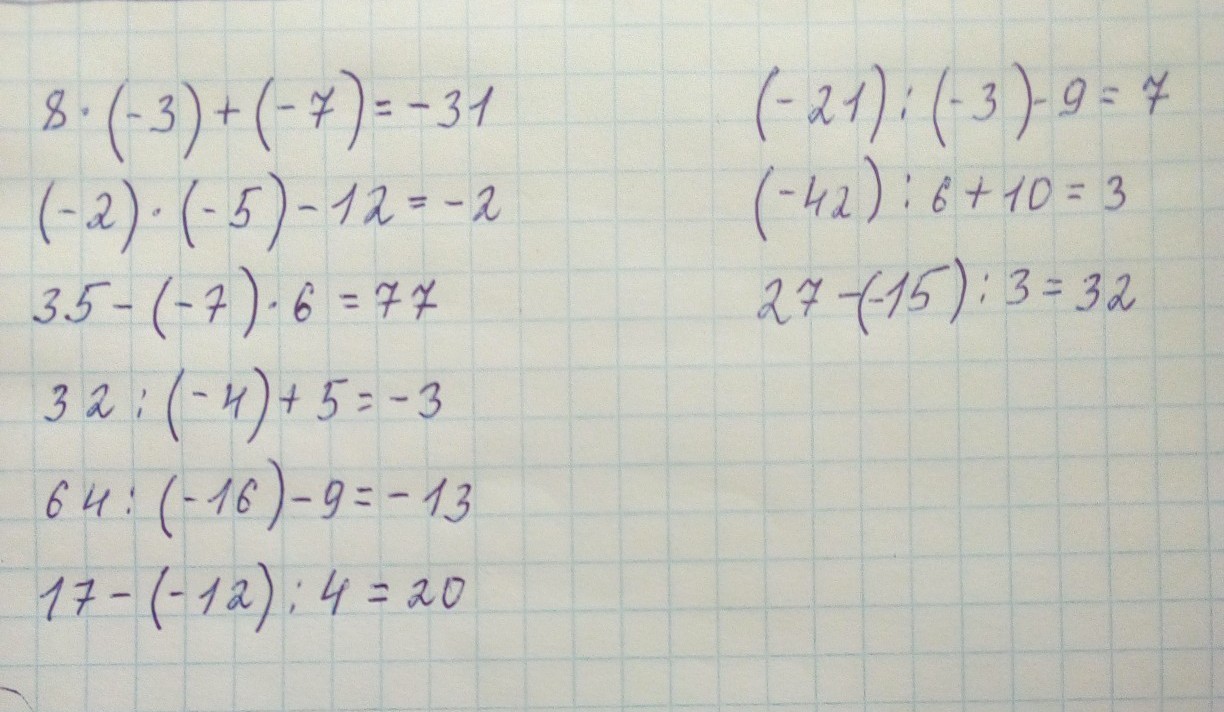 8·(-3)+(-7)=-31
(-2)·(-5)-12=-2
35-(-7)·6=77
32:(-4)+5=-3
64:(-16)-9=-13
17-(-12):4=20
(-21):(-3)-9=7
(-42):6+10=3
27-(-15):3=32